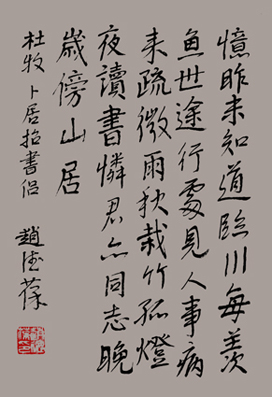 憶昨未知道臨川每羨
魚世途行處見人事病
来疏微雨秋栽竹孤燈
夜讀書憐君亦同志晚
歲傍山居
杜牧 卜居招書侶 趙